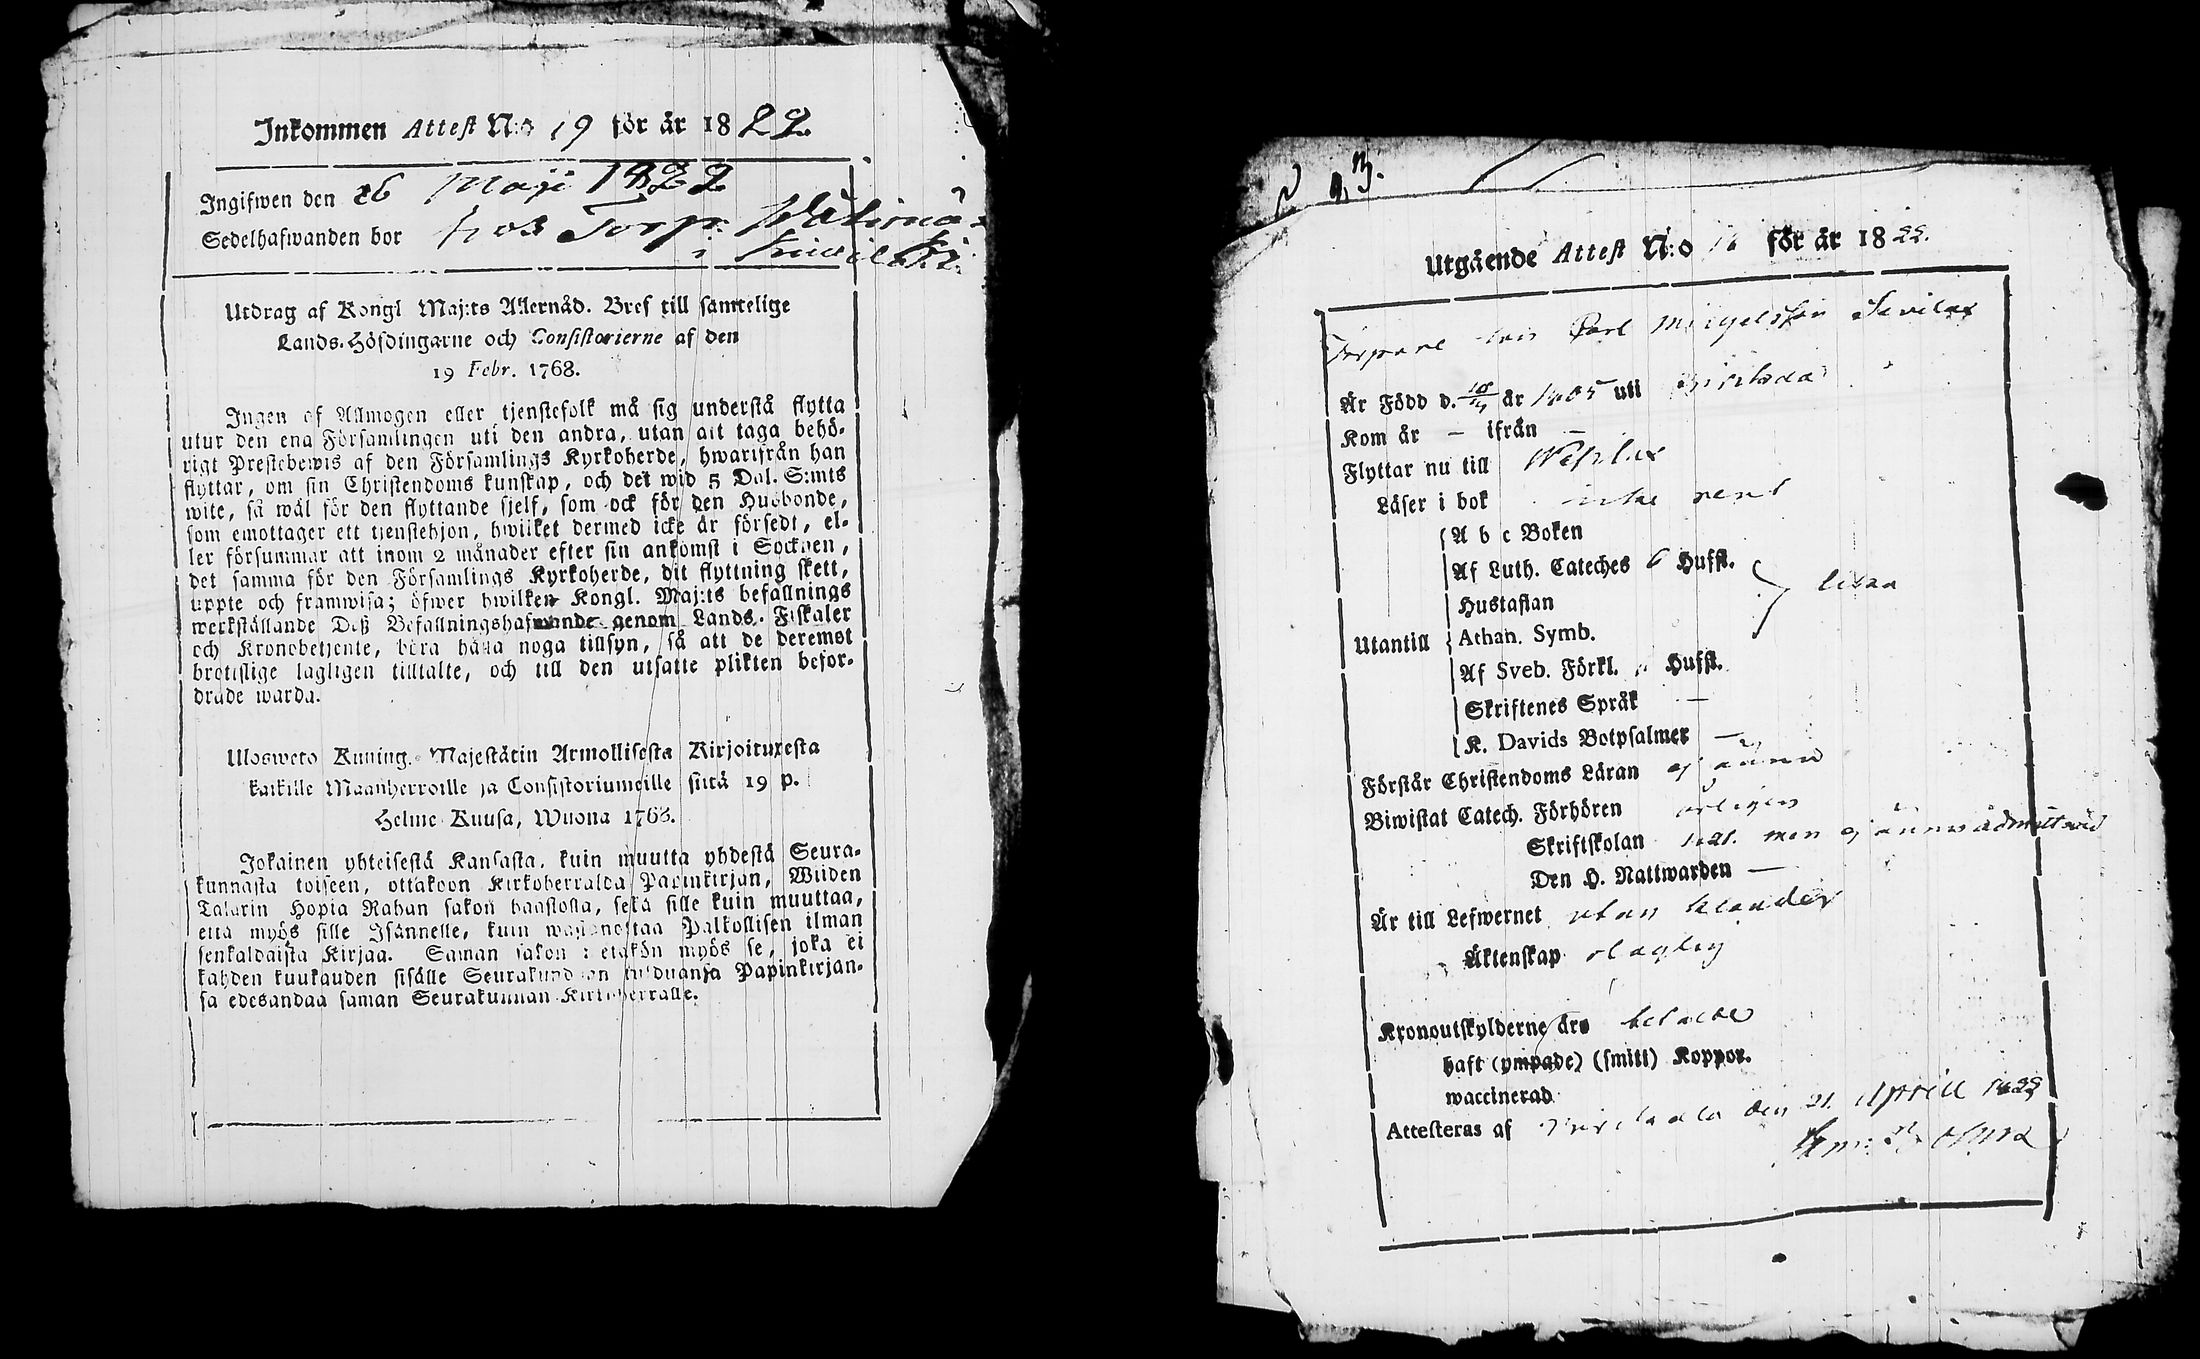 Inkommen Attest N:o 19 för år 1822.
Ingifwen den 26 Maji 1822
Sedelhafwanden bor hos Torp.
i
Utdrag af Kongl Maj:ts Allernåd. Bref till samtelige
Lands-Höfdingarne och Consistorierne af den
19 Febr. 1768.
Ingen af Allmogen eller tjenstefolk må sig understå flytta
utur den ena Församlingen uti den andra, utan att taga behö-
rigt Prestebewis af den Församlings Kyrkoherde, hwarifrån han
flyttar, om sin Christendoms kunskap, och det wid 5 Dal. S:mts
wite, så wäl för den flyttande sjelf, som ock för den Husbonde,
som emottager ett tjenstehjon, hwilket dermed icke är försedt, el-
ler försummar att inom 2 månader efter sin ankomst i Socknen,
det samma för den Församlings Kyrkoherde, dit flyttning skett,
uppte och framwisa; öfwer hwilken Kongl. Maj:ts befallnings
werkställande Deß Befallningshafwande genom Lands-Fiskaler
och Kronobetjente, böra hålla noga tillsyn, så att de deremot
brottslige lagligen tilltalte, och till den utsatte plikten befor-
drade warda.
Ulosweto Kuning. Majestätin Armollisesta Kirjoituxesta
kaikille Maanherroille ja Consistoriumeille siitä 19 p.
Helme Kuusa, Wuona 1768.
Jokainen yhteisestä Kansasta, kuin muutta yhdestä Seura-
kunnasta toiseen, ottakoon Kirkoherralda Papinkirjan, Wiiden
Talarin Hopia Rahan sakon haastolla, sekä sille kuin muuttaa,
että myös sille Isännelle, kuin wastanottaa Palkollisen ilman
senkaldaista Kirjaa. Saman sakon wetäkön myös se, joka ei
kahden kuukauden sisälle Seurakundaan tulduansa Papinkirjan-
sa edesandaa saman Seurakunnan Kirkoherralle.
Utgående Attest N:o 16 för år 1822.
Carl Michelsson
Är Född d. år 1805 uti
Kom år — ifrån —
Flyttar nu till
Läser i bok icke rent
A b c Boken
Af Luth. Cateches 6 Hufst.
Hustaflan
Utantill Athan. Symb.
Af Sveb. Förkl. Hufst.
Skriftenes Språk —
K. Davids Botpsalmer —
Förstår Christendoms Läran ej ännu
Biwistat Catech. Förhören årligen
Skriftskolan 1821. men ej ännu admitterad
Den H. Nattwarden —
Är till Lefwernet utan klander
Äktenskap olaglig
Kronoutskylderne äro betalte
haft (ympade) (smitt) Koppor.
waccinerad
Attesteras af den 21. Aprill 1822